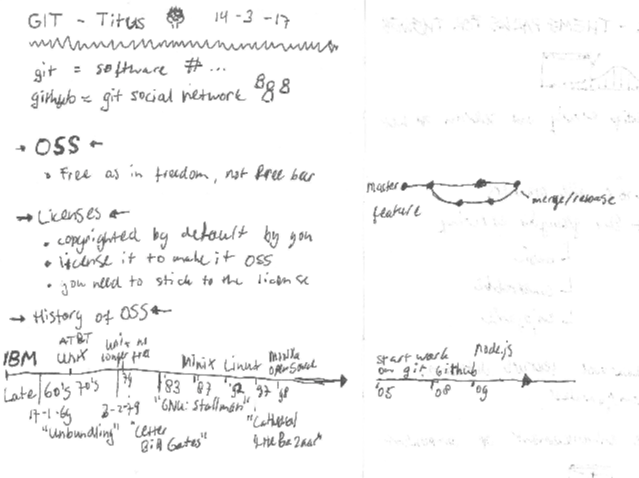 GIT - Titus 14-3-17
git = software # ...
github = git social network
→ OSS ←
• Free as in freedom, not free bar
→ Licenses ←
• copyrighted by default by you
• license it to make it OSS
• you need to stick to the license
→ History of OSS ←
IBM AT&T Unix Unix no longer free Minix Linux open source
Late 60's 70's '79 '83 '87 '92 '97 '98
"Unbundling" "Letter Bill Gates" "GNU: Stallman" "Cathedral & the Bazaar"
master
feature
merge/release
start work on git Github Node.js
'05 '08 '09